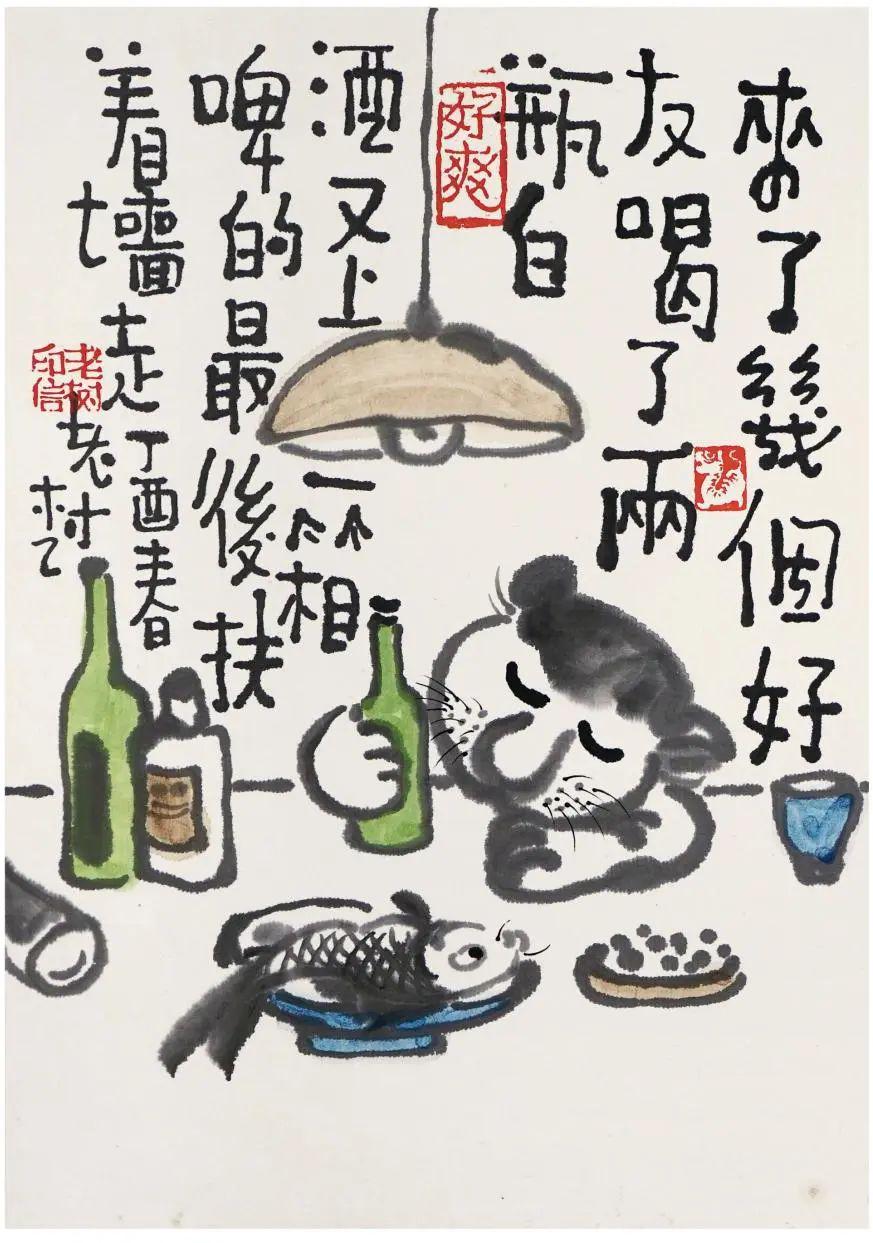 來了幾個好
友喝了兩
瓶白
酒又上一箱
啤的最後扶
着墻走
丁酉春
老树
好爽
老树印信